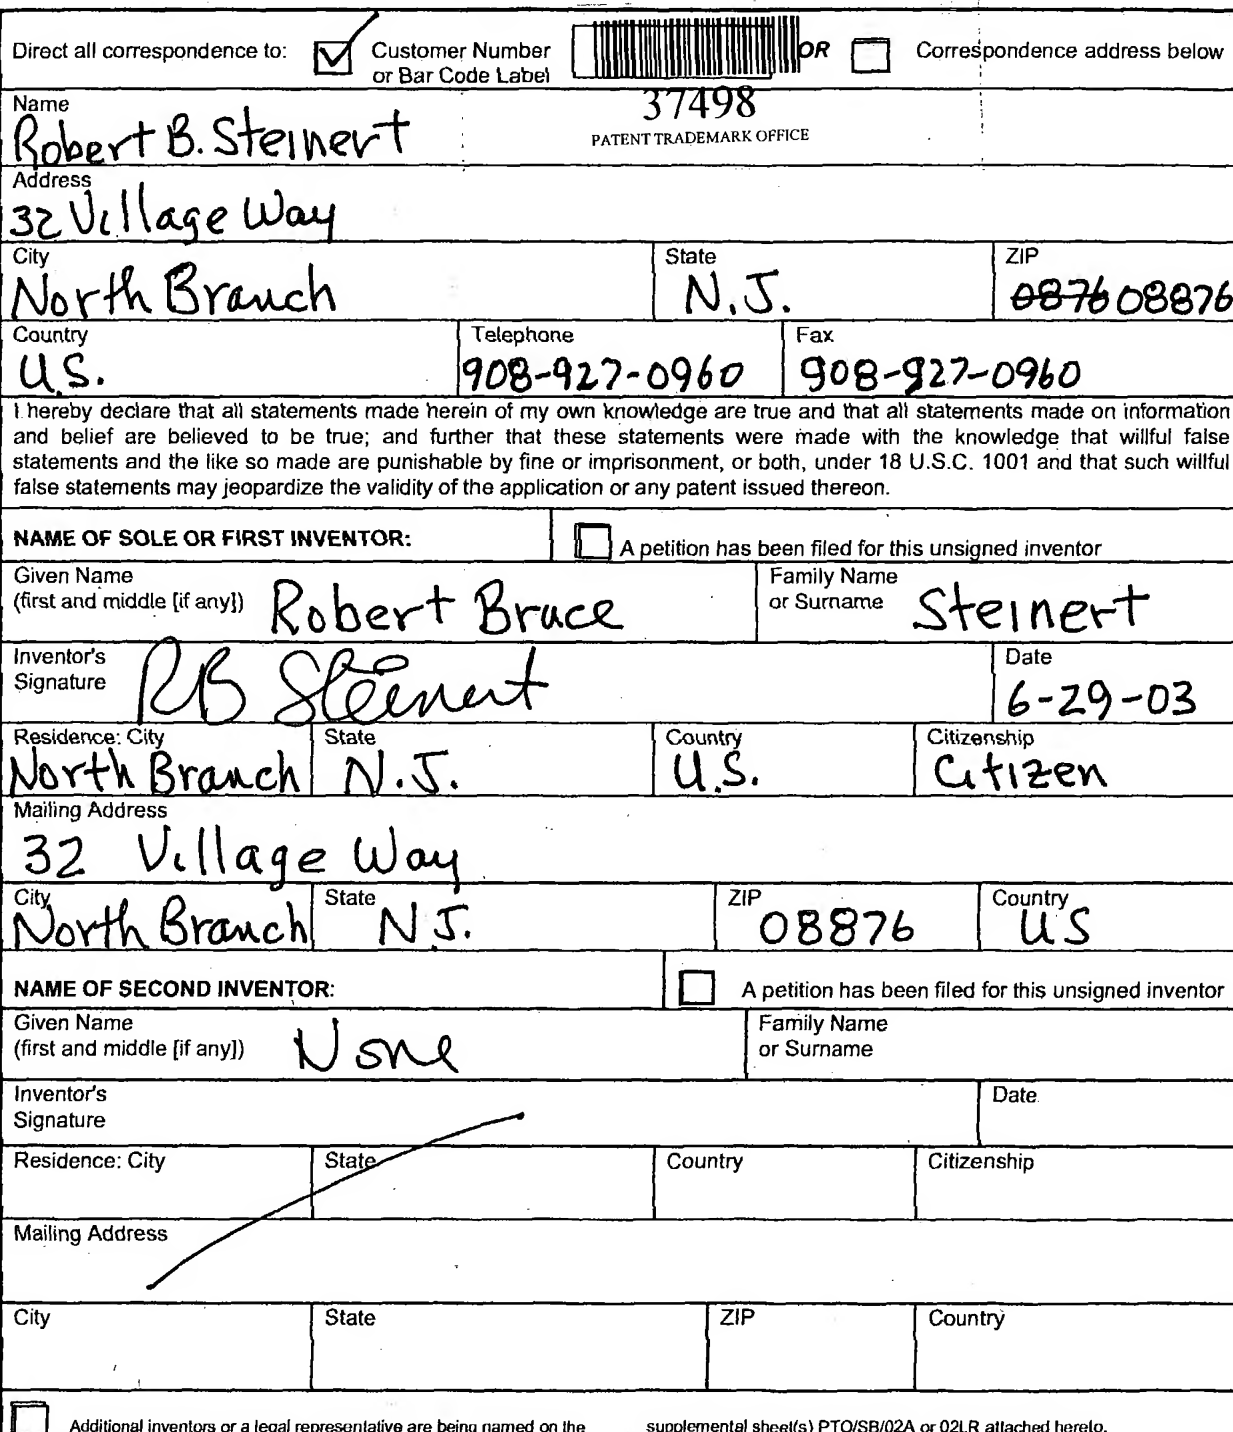 Direct all correspondence to: Customer Number or Bar Code Label OR Correspondence address below
37498
PATENT TRADEMARK OFFICE
Name
Robert B. Steinert
Address
32 Village Way
City State ZIP
North Branch N.J. 0876 08876
Country Telephone Fax
U.S. 908-927-0960 908-927-0960
I hereby declare that all statements made herein of my own knowledge are true and that all statements made on information
and belief are believed to be true; and further that these statements were made with the knowledge that willful false
statements and the like so made are punishable by fine or imprisonment, or both, under 18 U.S.C. 1001 and that such willful
false statements may jeopardize the validity of the application or any patent issued thereon.
NAME OF SOLE OR FIRST INVENTOR: A petition has been filed for this unsigned inventor
Given Name
(first and middle [if any]) Robert Bruce Family Name
or Surname Steinert
Inventor's
Signature RB Steinert Date
6-29-03
Residence: City State Country Citizenship
North Branch N.J. U.S. Citizen
Mailing Address
32 Village Way
City State ZIP Country
North Branch N J. 08876 US
NAME OF SECOND INVENTOR: A petition has been filed for this unsigned inventor
Given Name
(first and middle [if any]) None Family Name
or Surname
Inventor's
Signature Date
Residence: City State Country Citizenship
Mailing Address
City State ZIP Country
Additional inventors or a legal representative are being named on the supplemental sheet(s) PTO/SB/02A or 02LR attached hereto.